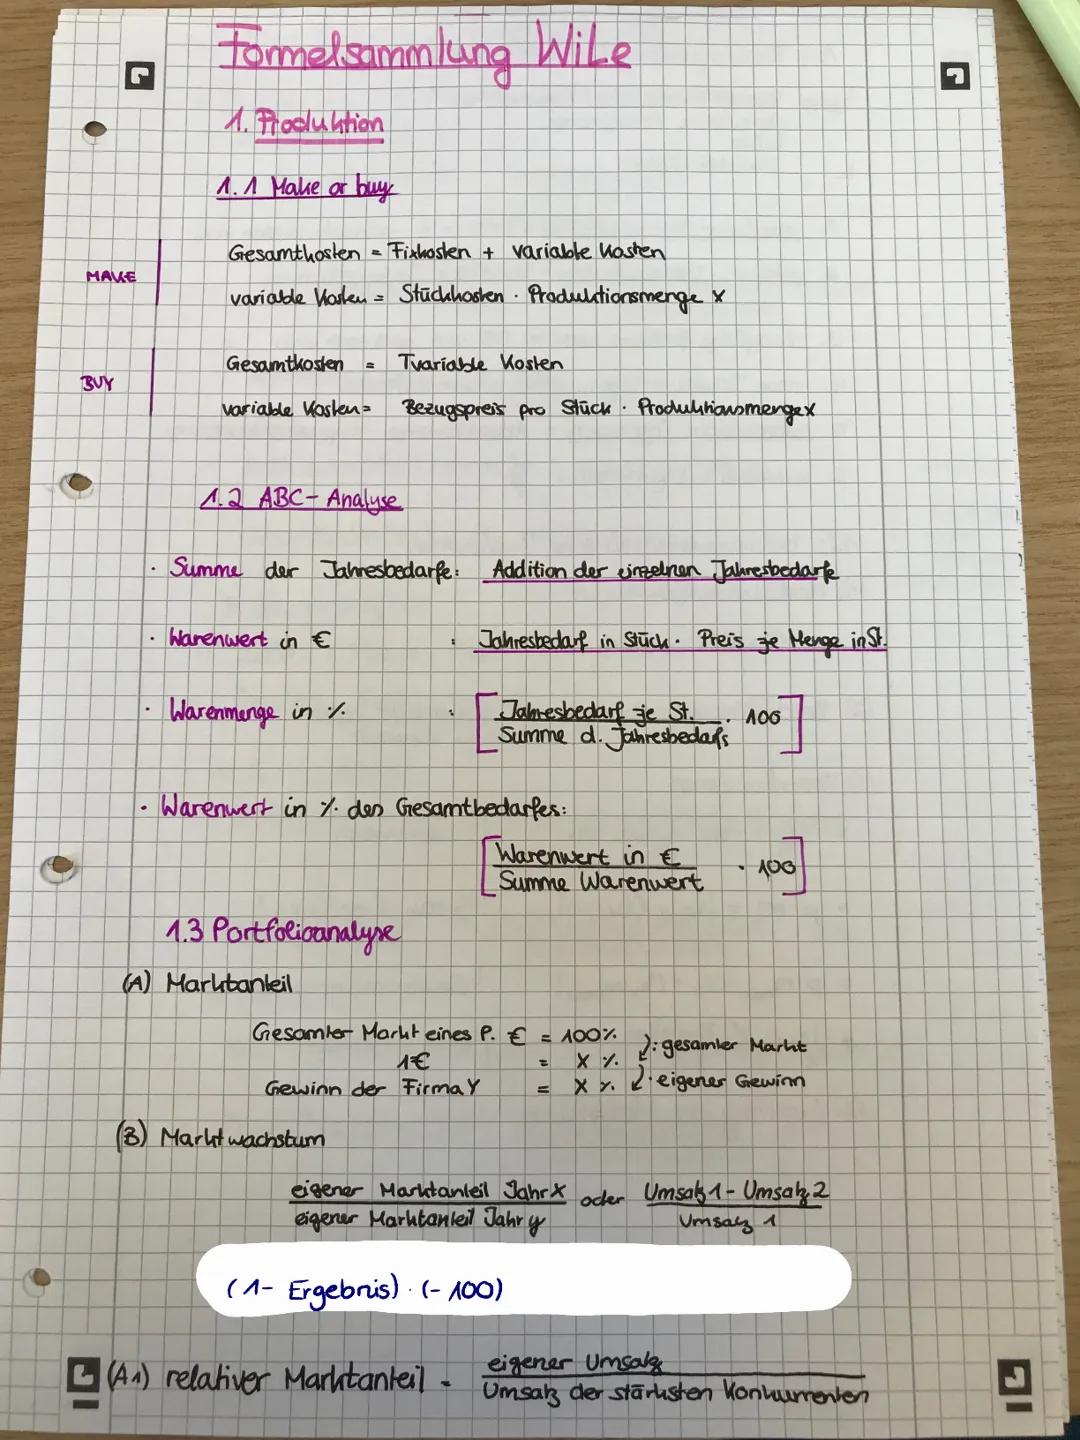 Formelsammlung WiLe
1. Produktion
1.1 Make or buy
MAKE
Gesamtkosten = Fixkosten + variable Kosten
variable Kosten = Stückkosten · Produktionsmenge x
BUY
Gesamtkosten = Tvariable Kosten
variable Kosten = Bezugspreis pro Stück · Produktionsmenge x
1.2 ABC-Analyse
· Summe der Jahresbedarfe: Addition der einzelnen Jahresbedarfe
· Warenwert in € : Jahresbedarf in Stück · Preis je Menge in St.
· Warenmenge in % : [Jahresbedarf je St. · 100]
Summe d. Jahresbedarfs
· Warenwert in % des Gesamtbedarfes:
[Warenwert in € · 100]
Summe Warenwert
1.3 Portfolioanalyse
(A) Marktanteil
Gesamter Markt eines P. € = 100% : gesamter Markt
1€ = X %
Gewinn der Firma Y = X % · eigener Gewinn
(B) Marktwachstum
eigener Marktanteil Jahr X oder Umsatz 1 - Umsatz 2
eigener Marktanteil Jahr y Umsatz 1
(1- Ergebnis) · (-100)
(A1) relativer Marktanteil - eigener Umsatz
Umsatz der stärksten Konkurrenten